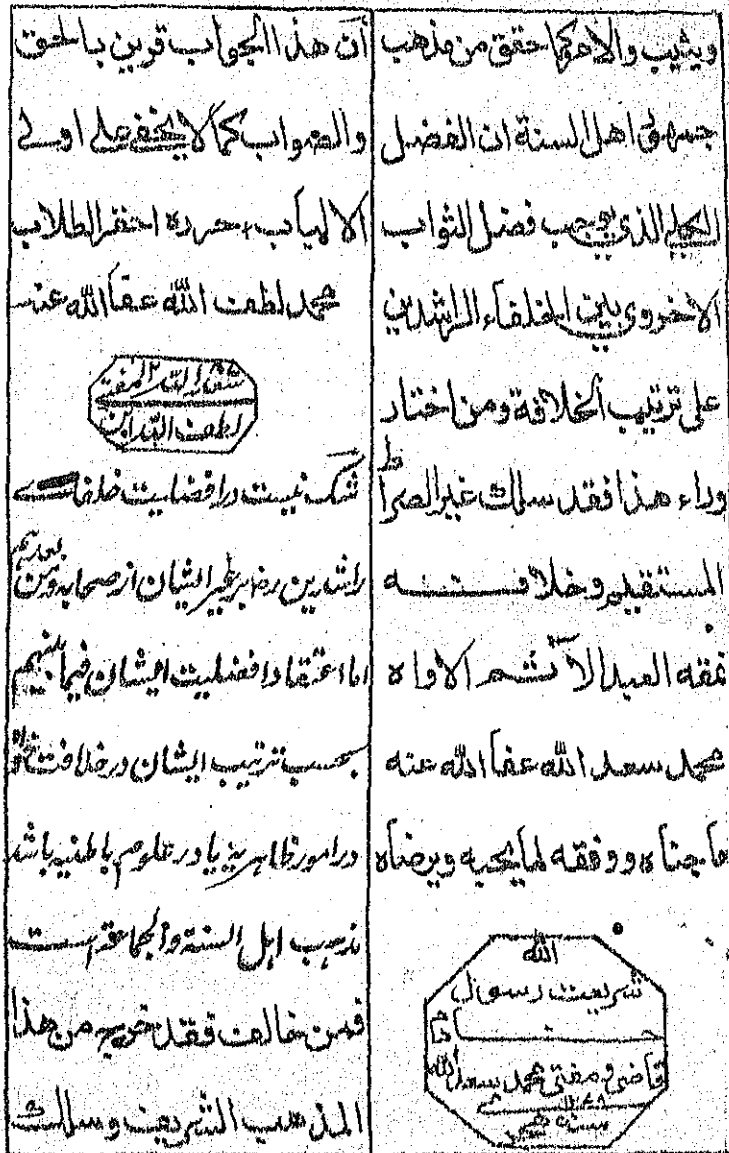 ويثيب والامر كما حقق من مذهب
جمهور اهل السنة ان الفضل
الكلي الذي يوجب فضل الثواب
الاخروي بين الخلفاء الراشدين
على ترتيب الخلافة ومن اختار
وراء هذا فقد سلك غير الصراط
المستقيم وخلافـــــــه
نمقه العبد الآثم الاواه
محمد سعد الله عفا الله عنه
ما جناه ووفقه لما يحبه ويرضاه
الله
شريعت رسول
خــــــادم
قاضي ومفتي محمد سعد الله
أن هذا الجواب قرين بالحق
والصواب كما لا يخفى على اولى
الالباب، حرره احقر الطلاب
محمد لطف الله عفا الله عنہ
المفتی
لطف الله ابن
شک نیست در افضلیت خلفائے
راشدین رض بر غیر ایشان از صحابہ ومن بعدہم
اما اعتقاد افضلیت ایشان فیما بینہم
بحسب ترتیب ایشان در خلافت خواہ
در امور ظاہریہ یا در علوم باطنیہ باشد
مذہب اہل السنة والجماعة است
فمن خالف فقد خرج من هذا
المذهب الشريف وسلك